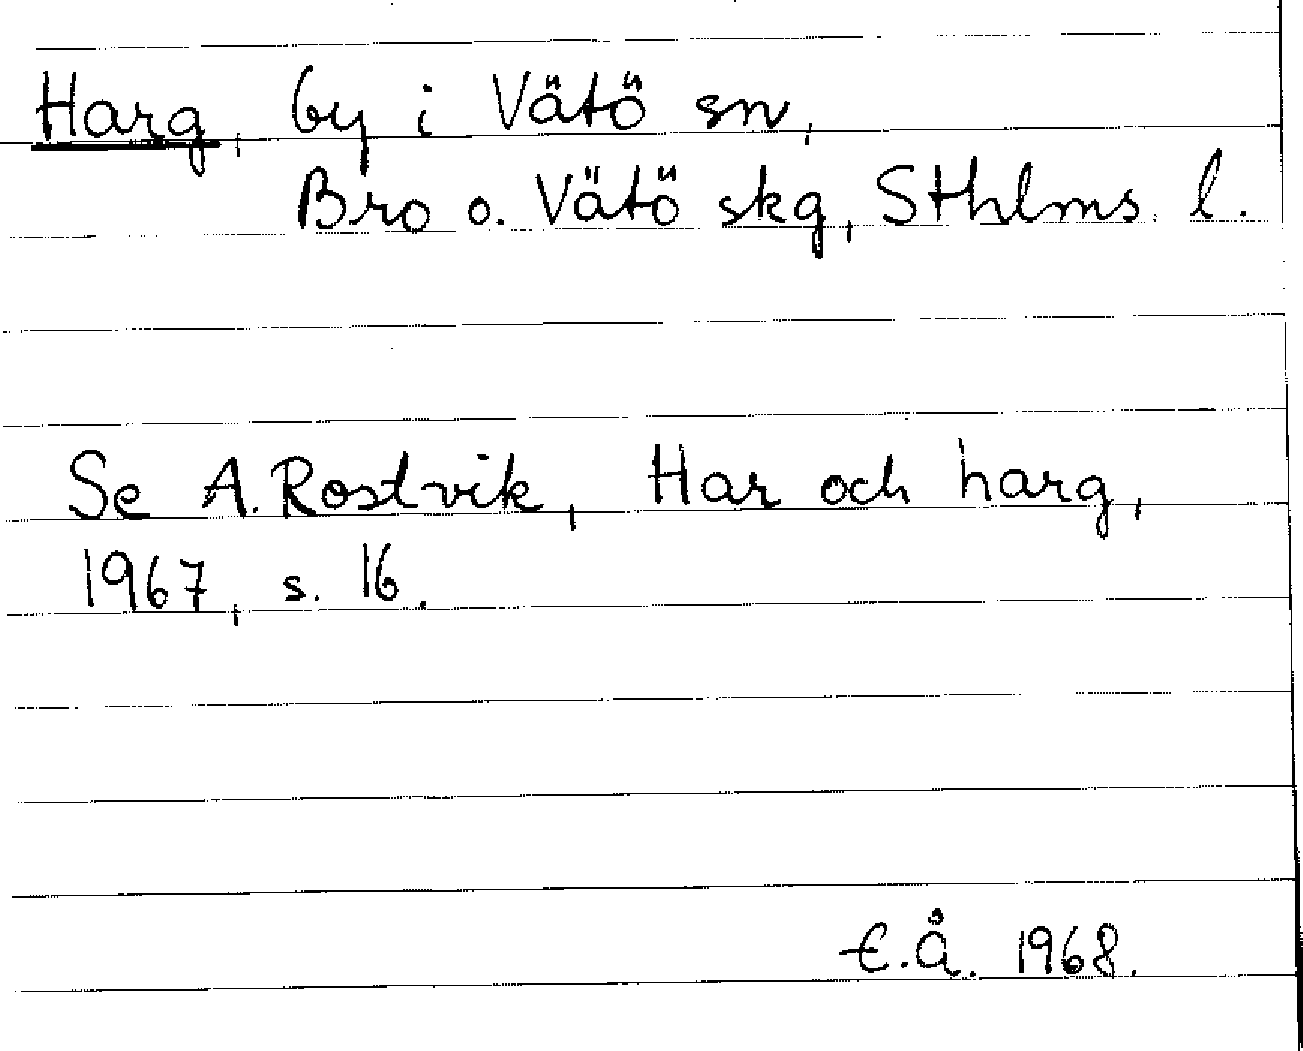 Harg, by i Vätö sn,
Bro o. Vätö skg, Sthlms. l.
Se A. Rostvik, Har och harg,
1967, s. 16.
E.Å. 1968.